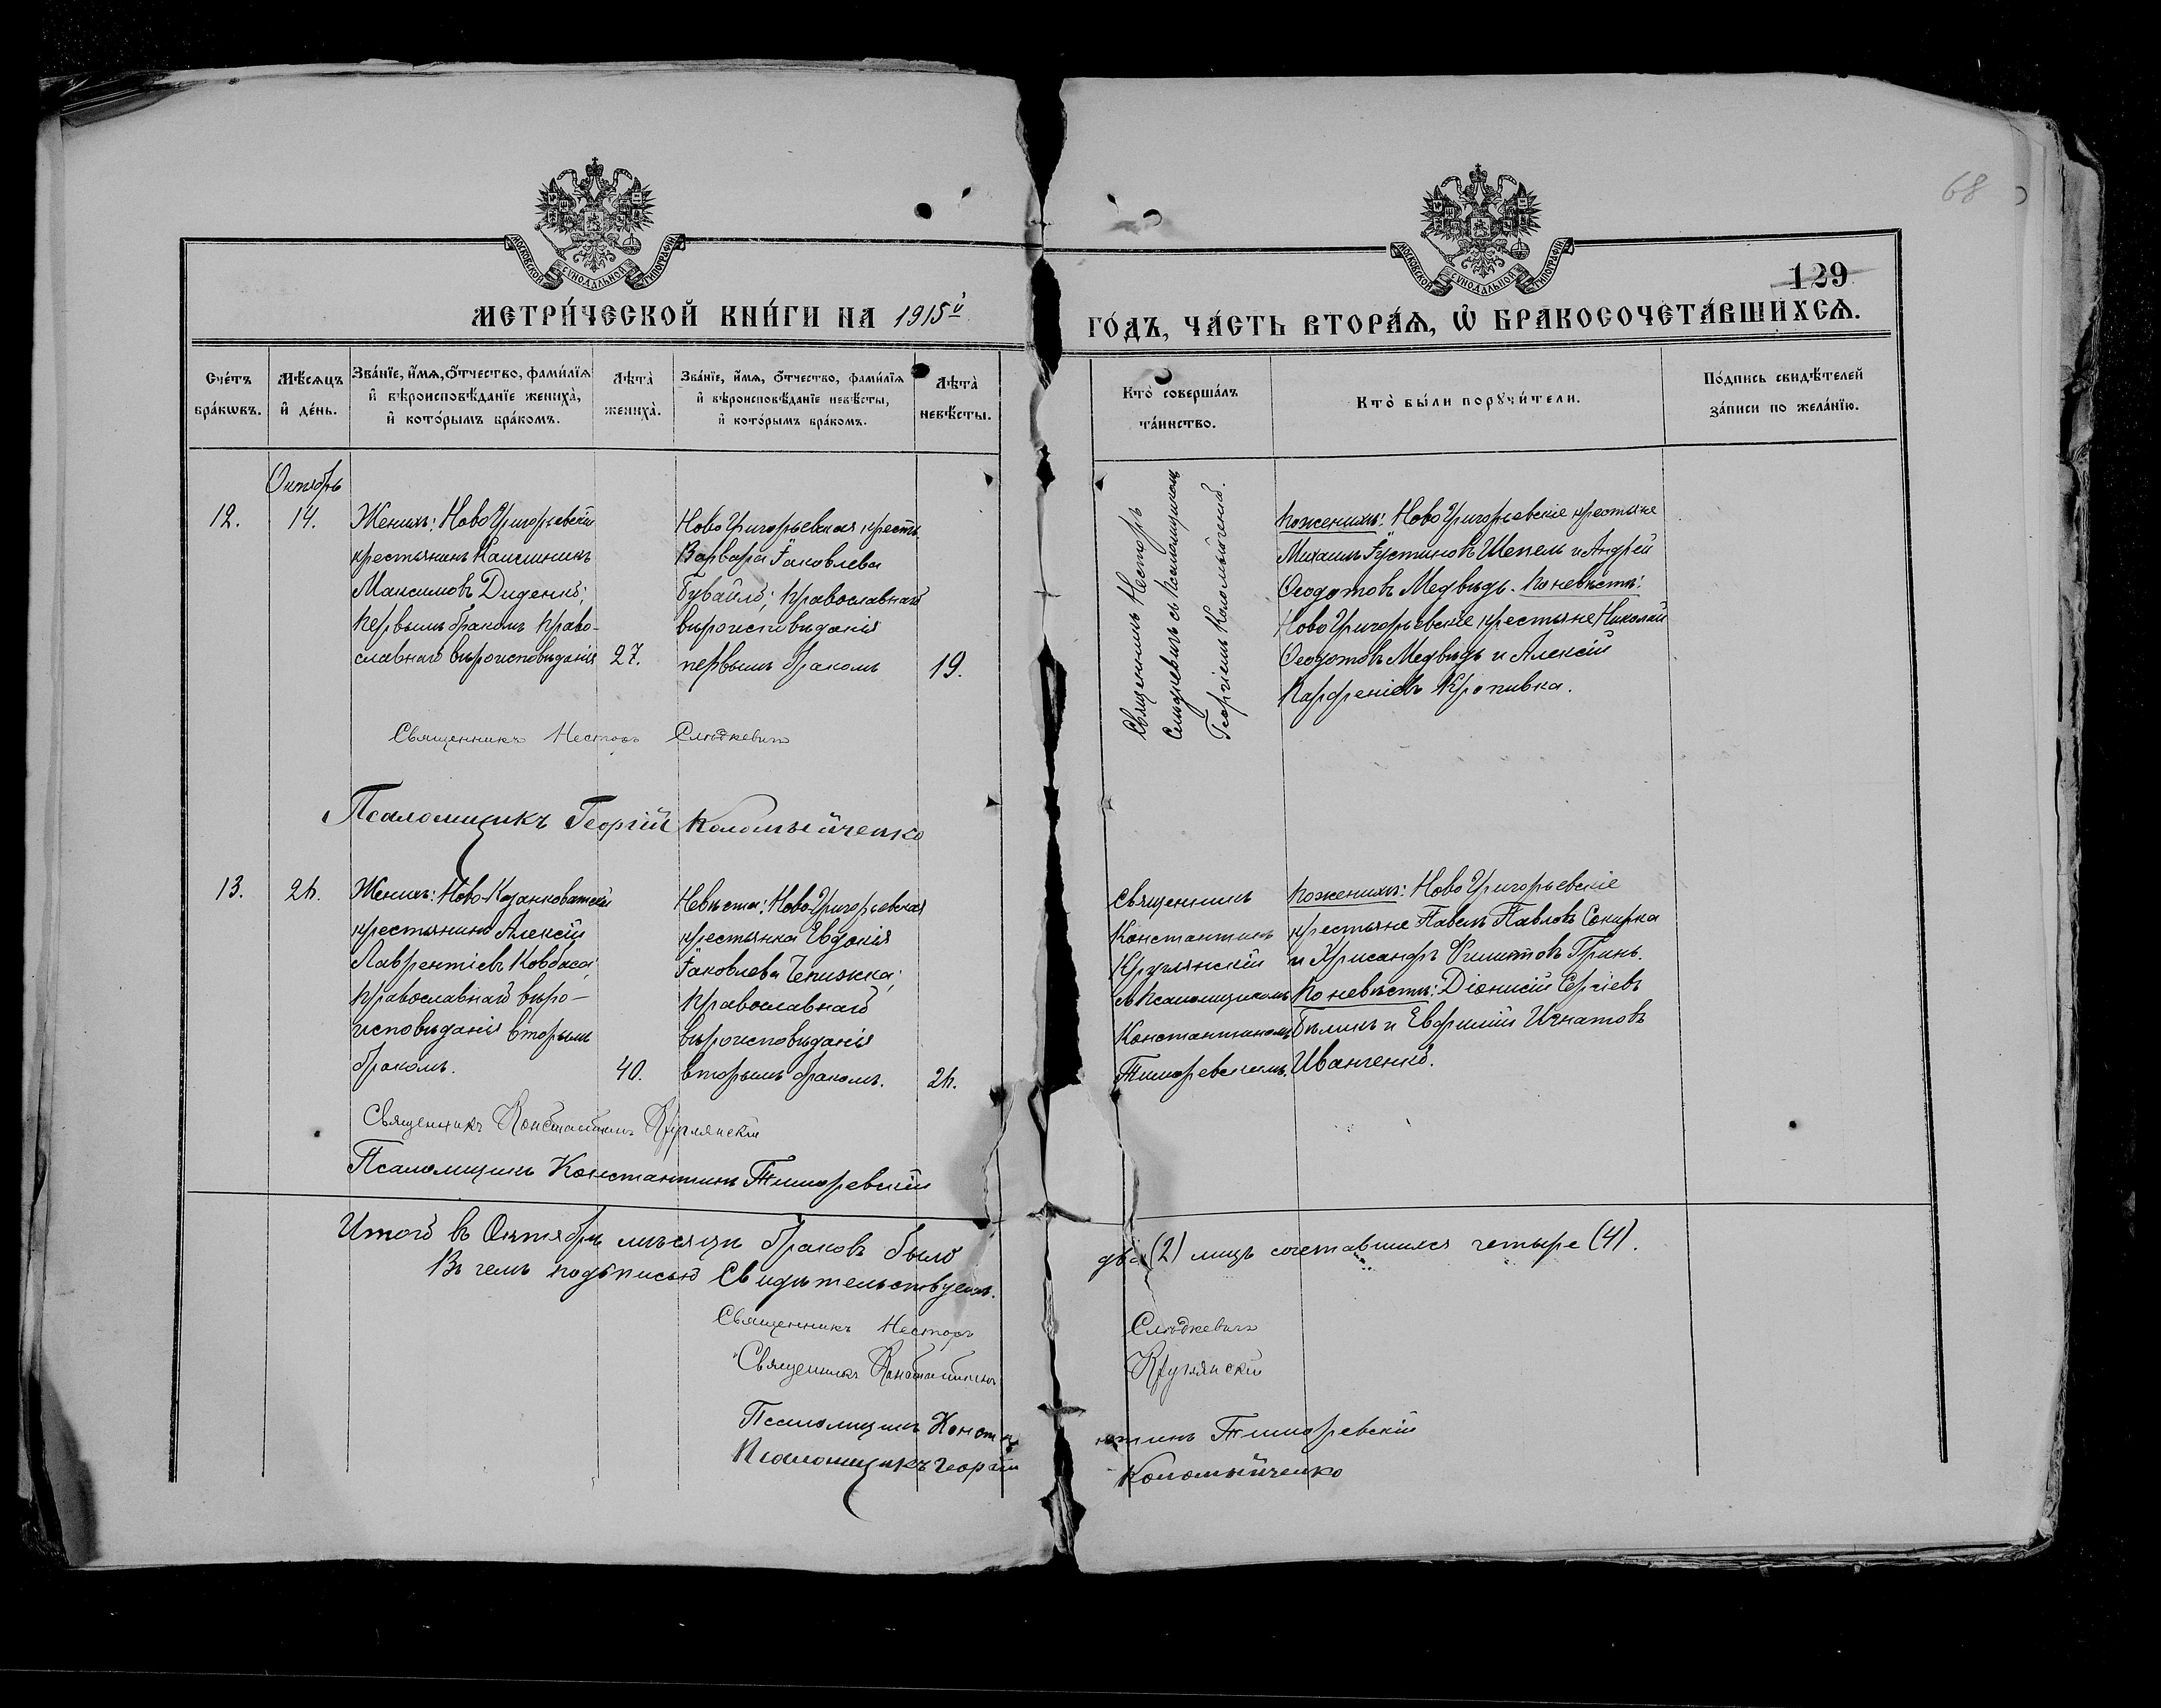 68
МОСКОВСКОЙ СѴНОДАЛЬНОЙ ТИПОГРАФІИ
МОСКОВСКОЙ СѴНОДАЛЬНОЙ ТИПОГРАФІИ
129
МЕТРИ́ЧЕСКОЙ КНИ́ГИ НА 1915й
ГО́ДЪ, ЧА́СТЬ ВТОРА́Ѧ, Ѽ БРАКОСОЧЕТА́ВШИХСѦ.
Сче́тъ бра́кѡвъ.
Мѣ́сѧцъ и҆ де́нь.
Зва́нїе, и҆́мѧ, ѻ҆́тчество, фами́лїѧ и҆ вѣроисповѣ́данїе жениха̀, и҆ кото́рымъ бра́комъ.
Лѣта̀ жениха̀.
Зва́нїе, и҆́мѧ, ѻ҆́тчество, фами́лїѧ и҆ вѣроисповѣ́данїе невѣ́сты, и҆ кото́рымъ бра́комъ.
Лѣта̀ невѣ́сты.
Кто̀ соверша́лъ та́инство.
Кто̀ бы́ли порꙋчи́тели.
По́дпись свидѣ́телей за́писи по жела́нїю.
Октябрь
12.
14.
Женихъ: НовоГригорьевскій
крестьянинъ
Максимовъ Диденко;
первымъ бракомъ право-
славнаго вѣроисповѣданія
27.
НовоГригорьевская крест.
Варвара Іаковлева
Бувайло; православнаго
вѣроисповѣданія
первымъ бракомъ
19.
Священникъ Несторъ
Слѣдкевичъ съ псаломщикомъ
Георгіемъ Коломыйченко.
По женихѣ: НовоГригорьевскіе крестьяне
Михаилъ Іустиновъ Шепель и Андрей
Ѳеодотовъ Медвѣдь. По невѣстѣ:
НовоГригорьевскіе крестьяне Николай
Ѳеодотовъ Медвѣдь и Алексій
Парфеніевъ Кропивка.
Священникъ Несторъ Слѣдкевичъ
Псаломщикъ Георгій Коломыйченко
13.
24.
Женихъ: Ново-Казанковатскій
крестьянинъ Алексій
Лаврентіевъ Ковбаса;
православнаго вѣро-
исповѣданія вторымъ
бракомъ.
40.
Невѣста: Ново-Григорьевская
крестьянка Евдокія
Іаковлева Чепижка;
православнаго
вѣроисповѣданія
вторымъ бракомъ.
24.
Священникъ
Константинъ
Круглянскій
съ Псаломщикомъ
Константиномъ
По женихѣ: НовоГригорьевскіе
крестьяне Павелъ Павловъ Сокирка
и Хрисанфъ Гринь.
По невѣстѣ: Діонисій Сергіевъ
Бѣликъ и Евфимій Игнатовъ
Иванченко.
Священникъ Константинъ Круглянскій
Псаломщикъ Константинъ
Итого въ Октябрѣ мѣсяцѣ браковъ было два (2) лицъ сочетавшихся четыре (4).
Въ чемъ подписью Свидѣтельствуемъ.
Священникъ Несторъ Слѣдкевичъ
Священникъ Константинъ Круглянскій
Псаломщикъ Константинъ
Псаломщикъ Георгій Коломыйченко